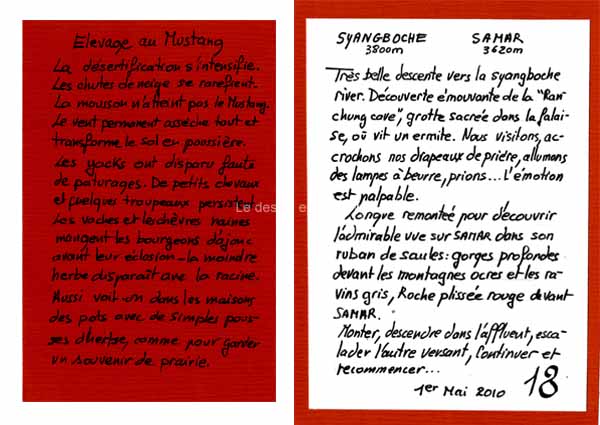 Elevage au Mustang
La désertification s'intensifie.
Les chutes de neige se raréfient.
La mousson n'atteint pas le Mustang.
Le vent permanent assèche tout et
transforme le sol en poussière.
Les yacks ont disparu faute
de paturages. De petits chevaux
et quelques troupeaux persistent
Les vaches et les chèvres naines
mangent les bourgeons d'ajonc
avant leur éclosion - la moindre
herbe disparaît avec la racine.
Aussi voit-on dans les maisons
des pots avec de simples pous-
ses d'herbe, comme pour garder
un souvenir de prairie.
SYANGBOCHE SAMAR
3800m 3620m
Très belle descente vers la syangboche
river. Découverte émouvante de la "Ran-
chung cave", grotte sacrée dans la falai-
se, où vit un ermite. Nous visitons, ac-
crochons nos drapeaux de prière, allumons
des lampes à beurre, prions... L'émotion
est palpable.
Longue remontée pour découvrir
l'admirable vue sur SAMAR dans son
ruban de saules: gorges profondes
devant les montagnes ocres et les ra-
vins gris, Roche plissée rouge devant
SAMAR.
Monter, descendre dans l'affluent, esca-
lader l'autre versant, Continuer et
recommencer...
1er Mai 2010 18